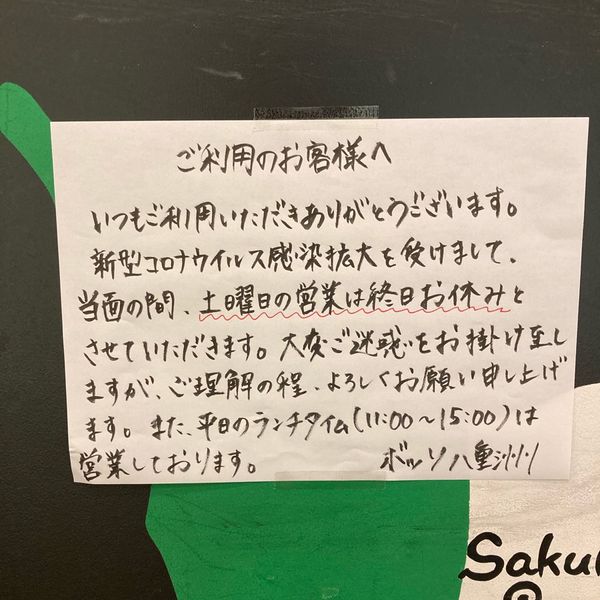 ご利用のお客様へ
いつもご利用いただきありがとうございます。
新型コロナウイルス感染拡大を受けまして、
当面の間、土曜日の営業は終日お休みと
させていただきます。大変ご迷惑をお掛け致し
ますが、ご理解の程、よろしくお願い申し上げ
ます。また、平日のランチタイム(11:00〜15:00)は
営業しております。 ボッソ八重洲
Saku